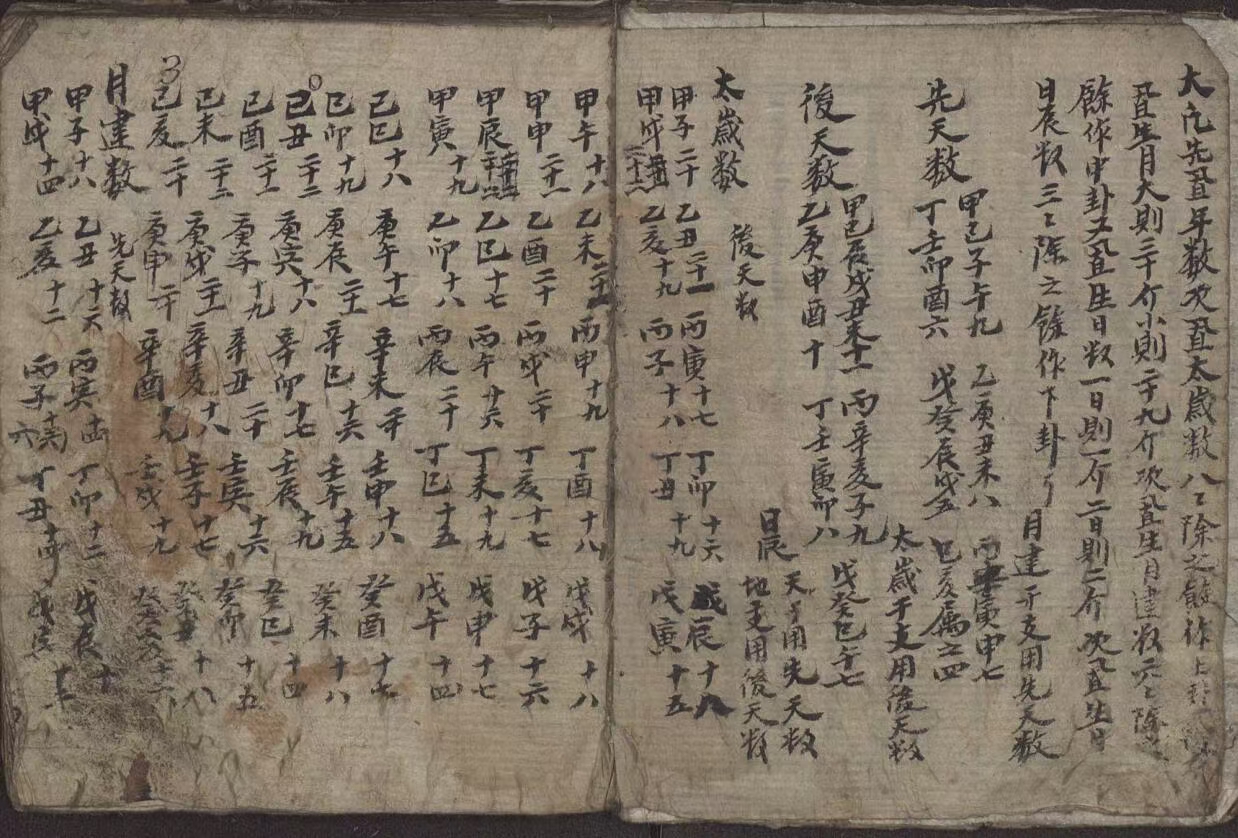 大凡先置年數次置太歲數八〻除之餘作上卦
置生月大則三十介小則二十九介次置生月建數六〻除之
餘作中卦又置生日数一日則一介二日則二介次置生日
日辰数三〻除之餘作下卦
月建干支用先天数
先天数
甲己子午九 乙庚丑未八 丙辛寅申七
丁壬卯酉六 戊癸辰戌五 巳亥属之四
太歲干支用後天数
後天数
甲己辰戌丑未十一 丙辛亥子九 戊癸巳午七
乙庚申酉十 丁壬寅卯八
日辰 天干用先天数
地支用後天数
太歲数 後天数
甲子二十 乙丑二十一 丙寅十七 丁卯十六 戊辰十八
甲戌二十二 乙亥十九 丙子十八 丁丑十九 戊寅十五
甲午十八 乙未二十一 丙申十九 丁酉十八 戊戌十八
甲申二十一 乙酉二十 丙戌二十 丁亥十七 戊子十六
甲辰二十二 乙巳十七 丙午十六 丁未十九 戊申十七
甲寅十九 乙卯十八 丙辰二十 丁巳十五 戊午十四
己巳十八 庚午十七 辛未二十 壬申十八 癸酉十七
己卯十九 庚辰二十一 辛巳十六 壬午十五 癸未十八
己丑二十二 庚寅十八 辛卯十七 壬辰十九 癸巳十四
己酉二十一 庚子十九 辛丑二十 壬寅十六 癸卯十五
己未二十二 庚戌二十一 辛亥十八 壬子十七 癸丑十八
己亥二十 庚申二十 辛酉十九 壬戌十九 癸亥十六
月建数 先天数
甲子十八 乙丑十六 丙寅十四 丁卯十二 戊辰十
甲戌十四 乙亥十二 丙子十六 丁丑十四 戊寅十二